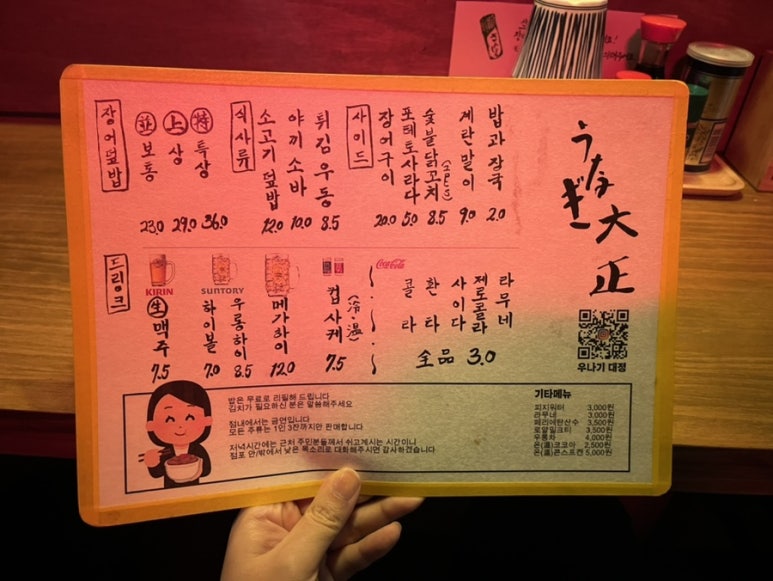 うなぎ
大正
우나기 대정
장어덮밥
並 보통 23.0
上 상 29.0
特 특상 36.0
식사류
소고기 덮밥 12.0
야끼소바 10.0
튀김우동 8.5
사이드
장어구이 20.0
포테토사라다 5.0
숯불닭꼬치 8.5
계란말이 9.0
밥과 장국 2.0
드링크
KIRIN
生 맥주 7.5
SUNTORY
하이볼 7.0
우롱하이 8.5
메가하이 12.0
컵사케 (冷·温) 7.5
Coca-Cola
콜라
환타
사이다
제로콜라
라무네
全品 3.0
밥은 무료로 리필해 드립니다
김치가 필요하신 분은 말씀해주세요
점내에서는 금연입니다
모든 주류는 1인 3잔까지만 판매합니다
저녁시간에는 근처 주민분들께서 쉬고계시는 시간이니
점포 안/밖에서 낮은 목소리로 대화해주시면 감사하겠습니다
기타메뉴
피지워터 3,000원
라무네 3,000원
페리에탄산수 3,500원
로얄밀크티 3,500원
우롱차 4,000원
온(温)코코아 2,500원
온(温)콘스프캔 5,000원